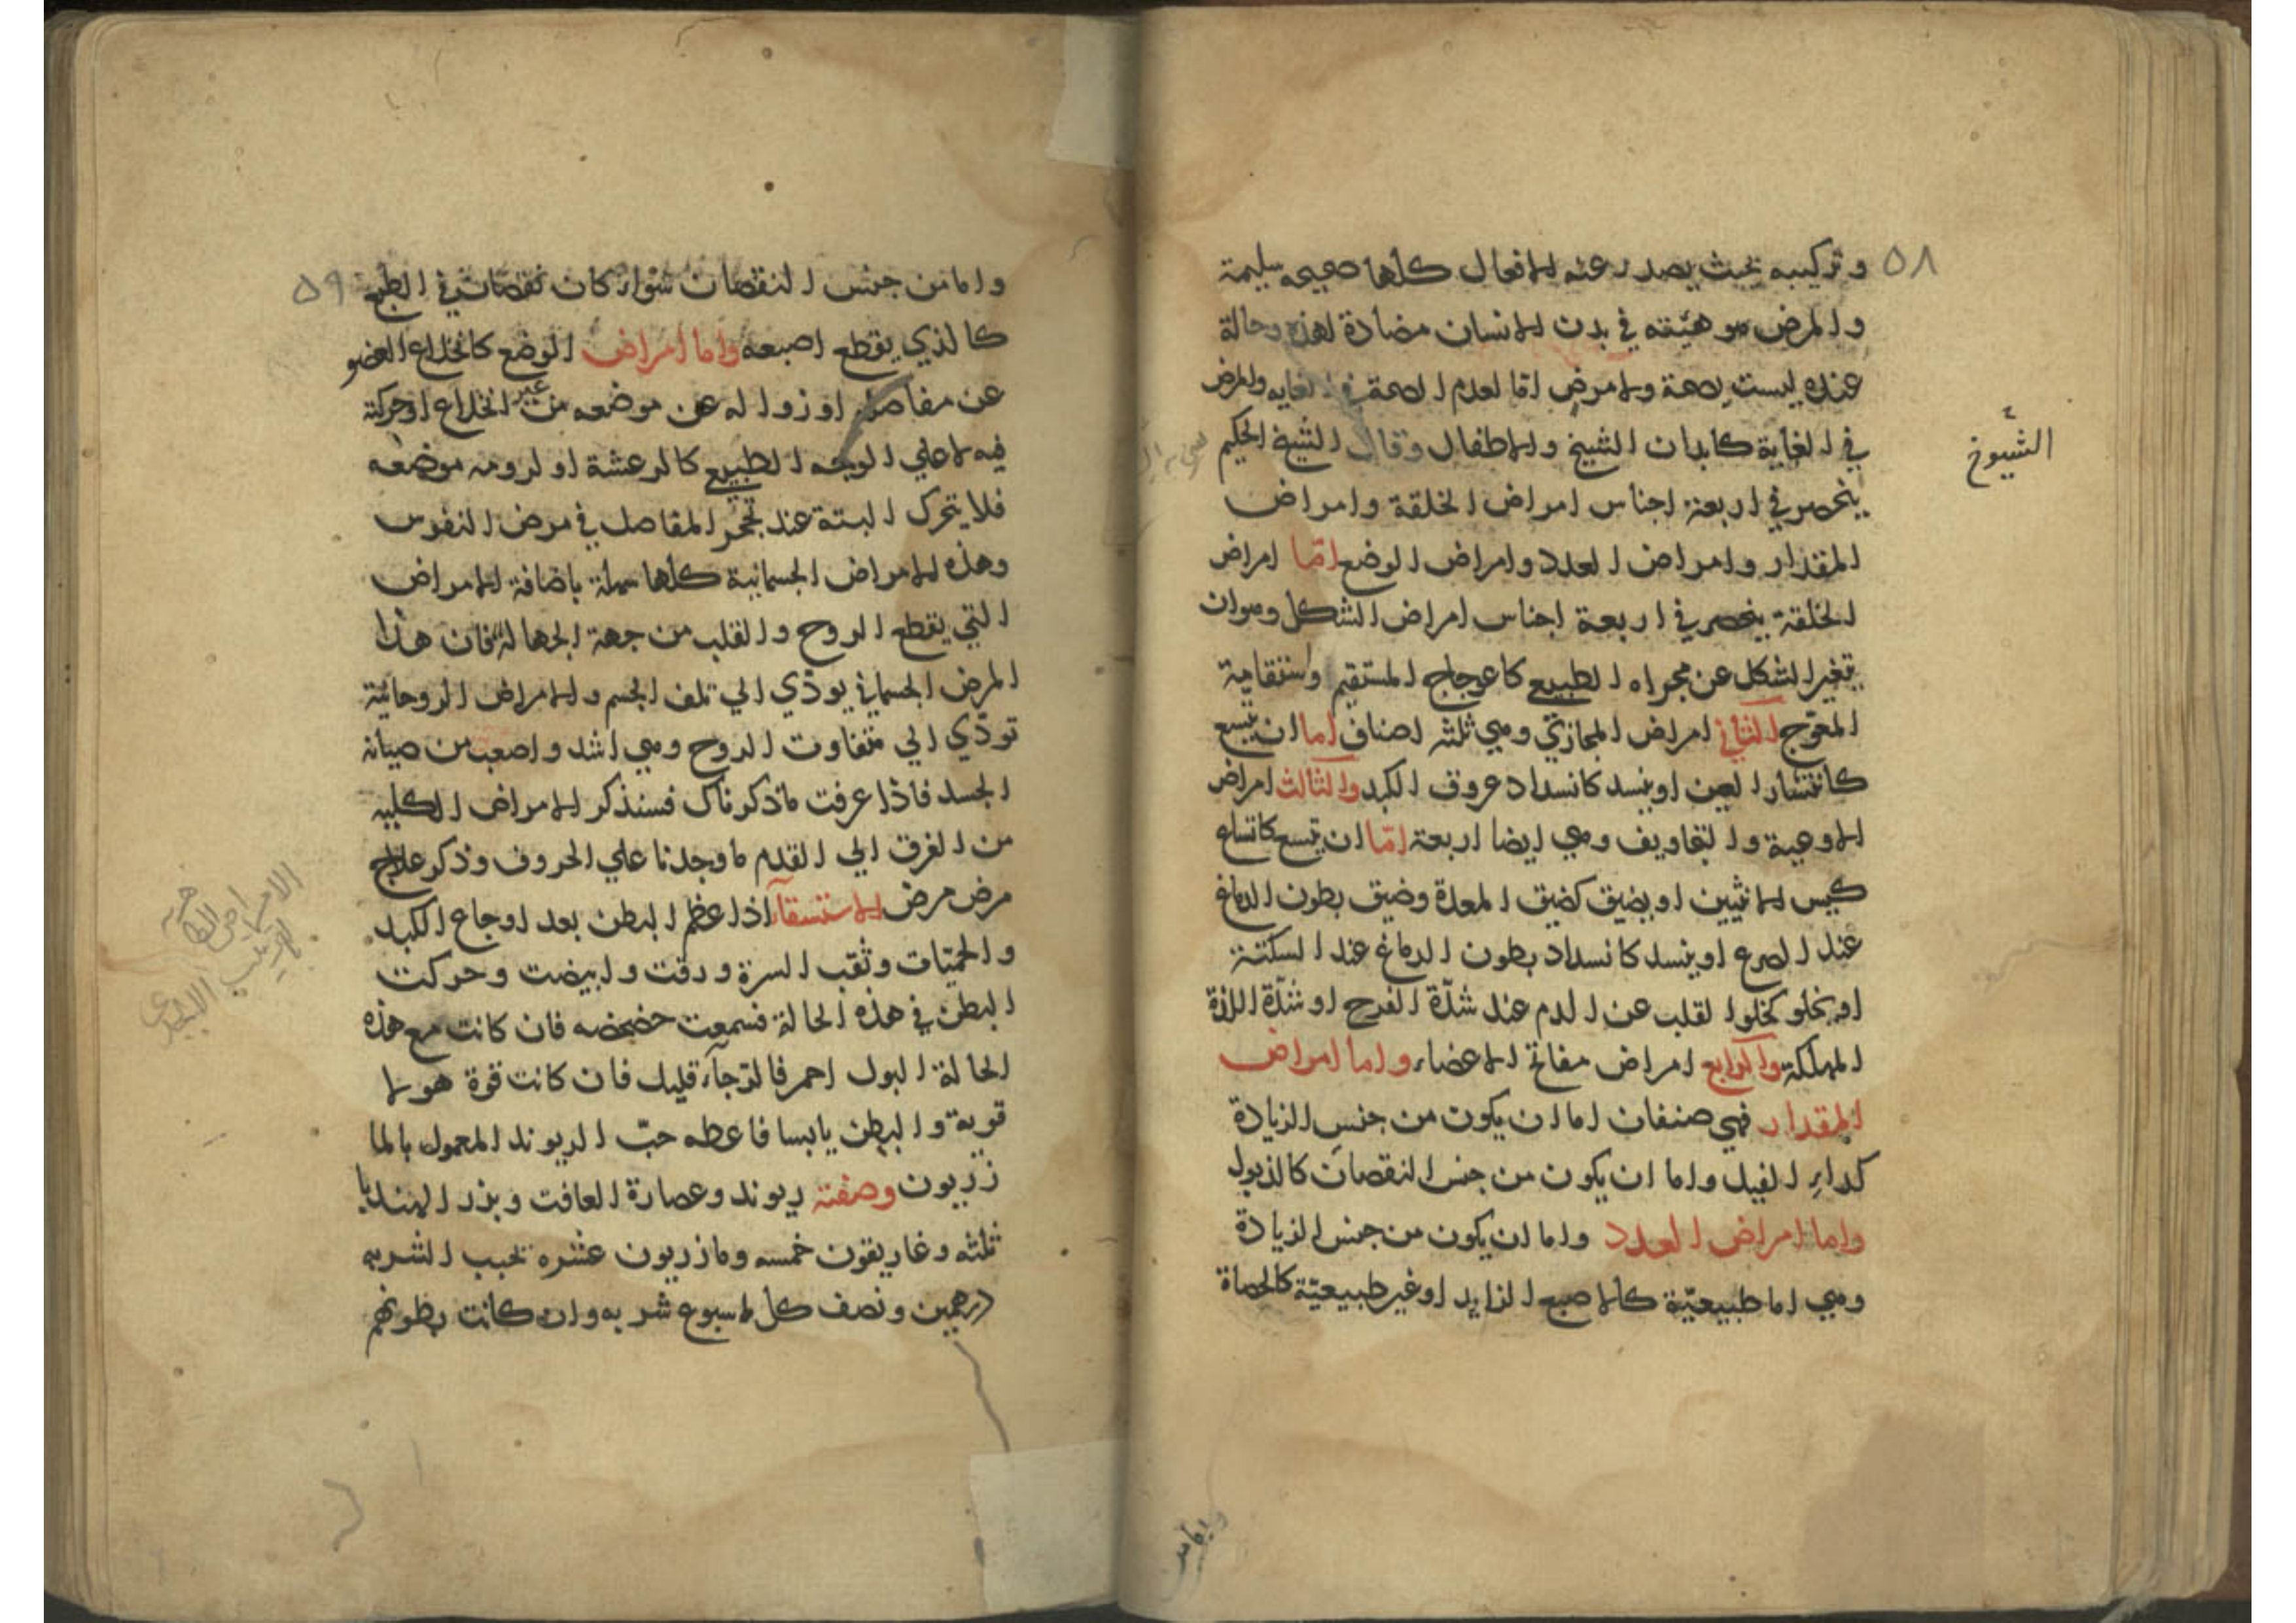 ٥٨
وتركيبه بحيث يصدر عنه الافعال كلها صحيحه سليمة
والمرض هو هيئته في بدن الانسان مضادة لهذه وحالة
عنده ليست بصحة ولا مرض اما لعدم الصحة في الغايه والمرض
في الغاية كابدان الشيخ والاطفال وقال الشيخ الحكيم
الشيوخ
ينحصر في اربعة اجناس امراض الخلقة وامراض
المقدار وامراض العدد وامراض الوضع اما امراض
الخلقة ينحصر في اربعة اجناس امراض الشكل وهو ان
يتغير الشكل عن مجراه الطبيعي كاعوجاج المستقيم واستقامية
المعوّج الثاني امراض المجازي وهي ثلثه اصناف اما ان يتسع
كانتشار العين او ينسد كانسداد عروق الكبد والثالث امراض
الاوعية والتجاويف وهي ايضا اربعة امّا ان يتسع كاتساع
كيس الانثيين او يضيق كضيق المعدة وضيق بطون الدماغ
عند الصرع او ينسد كانسداد بطون الدماغ عند السكتة
او يخلو كخلو القلب عن الدم عند شدّة الفرح او شدّة اللذة
المهلكة والرابع امراض صفائح الاعضاء واما امراض
المقدار فهي صنفان اما ان يكون من جنس الزيادة
كداء الفيل واما ان يكون من جنس النقصان كالذبول
واما امراض العدد واما ان يكون من جنس الزيادة
وهي اما طبيعيّة كالاصبع الزايد او غير طبيعيّة كالحصاة
واما من
٥٩
واما من جنس النقصان سواء كان نقصان في الطبع
كالذي يقطع اصبعه واما امراض الوضع كانخلاع العضو
عن مفاصله او زواله عن موضعه من غير انخلاع او حركة
فيه لا علي الوجه الطبيعي كالرعشة او لزومه موضعه
فلا يتحرك البتة عند تحجر المفاصل في مرض النقرس
وهذه الامراض الجسمانية كلها سهلة باضافة الامراض
التي يقطع الروح والقلب من جهة الجهالة فان هذا
المرض الجسماني يودّي الي تلف الجسم والامراض الروحانية
تودّي الي متفاوت الروح وهي اشد واصعب من صيانه
الجسد فاذا عرفت ما ذكرناك فسنذكر الامراض الكليه
من الفرق الي القدم ما وجدنا علي الحروف وذكر علاج
مرض مرض الاستسقآء اذا عظم البطن بعد اوجاع الكبد
والحمّيات وثقب السرة ودقت وابيضت وحركت
البطن في هذه الحالة فسمعت خضخضه فان كانت مع هذه
الحالة البول احمر فالرّجآء قليل فان كانت قوة هولا
قوية والبطن يابسا فاعطه حبّ الريوند المعمول بالما
زريون وصفته ريوند وعصارة الغافت وبزر الهندبا
ثلثه وغاريقون خمسه ومازريون عشره تحبب الشربه
درهمين ونصف كل اسبوع شربه وان كانت بطونهم